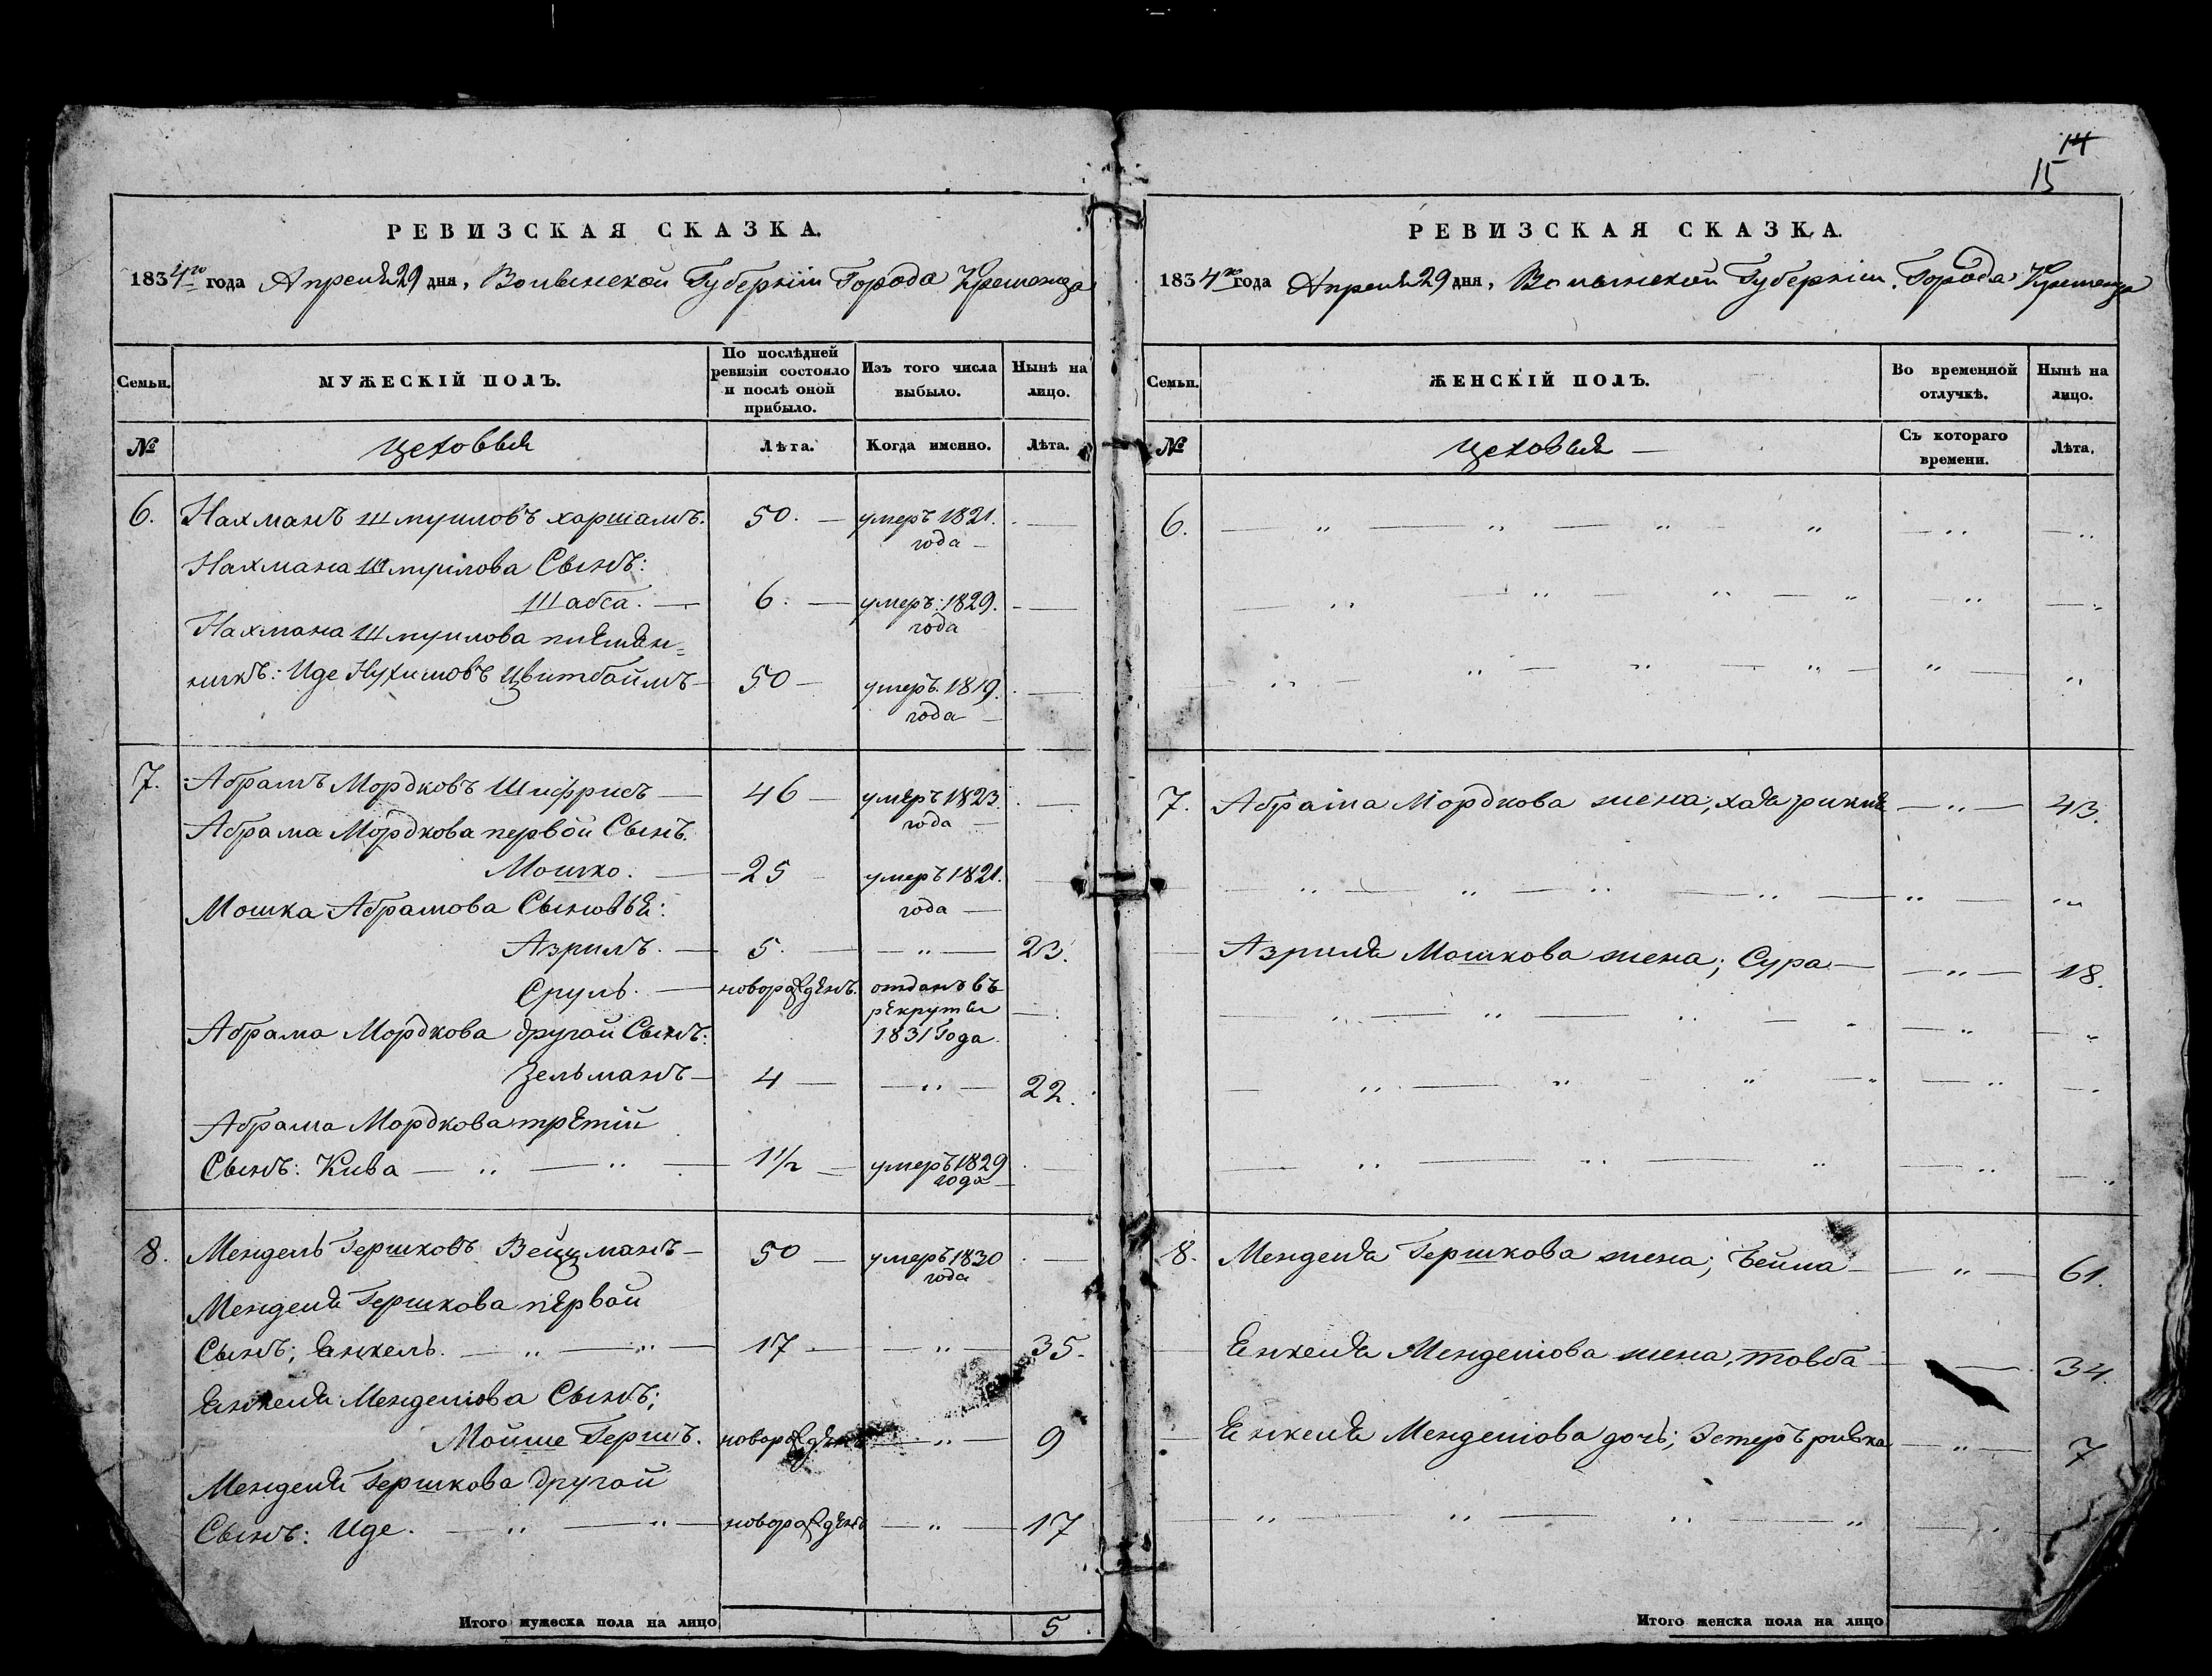 14
15
РЕВИЗСКАЯ СКАЗКА.
1834го года Апреля 29 дня, Волынской Губерніи Города Кременца
Семьи.
МУЖЕСКІЙ ПОЛЪ.
По послѣдней ревизіи состояло и послѣ оной прибыло.
Изъ того числа выбыло.
Нынѣ на лицо.
№
цеховыя
Лѣта.
Когда именно.
Лѣта.
6. Нахманъ Шмуиловъ харшамъ. 50. умеръ 1821.
года
Нахмана Шмуилова Сынъ:
Шабса. 6. умеръ: 1829.
года
Нахмана Шмуилова племян=
никъ: Иде Нухимовъ Цвитбаймъ 50 умеръ. 1819.
года
7. Абрамъ Мордковъ Шифрисъ 46 умеръ 1823.
года
Абрама Мордкова первой Сынъ.
Мошко. 25 умеръ 1821.
года
Мошка Абрамова Сыновья:
Азриль. 5. „ 23.
Сруль. новорожденъ. отданъ въ
рекруты
1831 Года.
Абрама Мордкова другой Сынъ:
Зельманъ 4 „ 22.
Абрама Мордкова третій
Сынъ: Кива „ „ 1½ умеръ 1829
года
8. Мендель Гершковъ Вейцманъ 50 умеръ 1830
года
Менделя Гершкова первой
Сынъ; Янкель. „ „ 17 „ 35.
Янкеля Менделюва Сынъ;
Мойше Гершъ. новорожденъ „ 9
Менделя Гершкова другой
Сынъ: Иде. „ „ новорожденъ „ 17
Итого мужеска пола на лицо 5.
РЕВИЗСКАЯ СКАЗКА.
1834го года Апреля 29 дня, Волынской Губерніи. Города Кременца
Семьи.
ЖЕНСКІЙ ПОЛЪ.
Во временной отлучкѣ.
Нынѣ на лицо.
№
цеховыя
Съ котораго времени.
Лѣта.
6. „ „ „ „ „ „
„ „ „ „ „ „
„ „ „ „ „ „
7. Абрама Мордкова жена, хая „ 43.
„ „ „ „ „ „
Азриля Мошкова жена; Сура „ 18.
„ „ „ „ „ „
„ „ „ „ „ „
„ „ „ „ „
8. Менделя Гершкова жена; Бейла „ 61.
Енкеля Менделюва жена, товба 34.
Енкеля Менделюва дочь; Эстеръ ривка „ 7
„ „ „ „ „
Итого женска пола на лицо